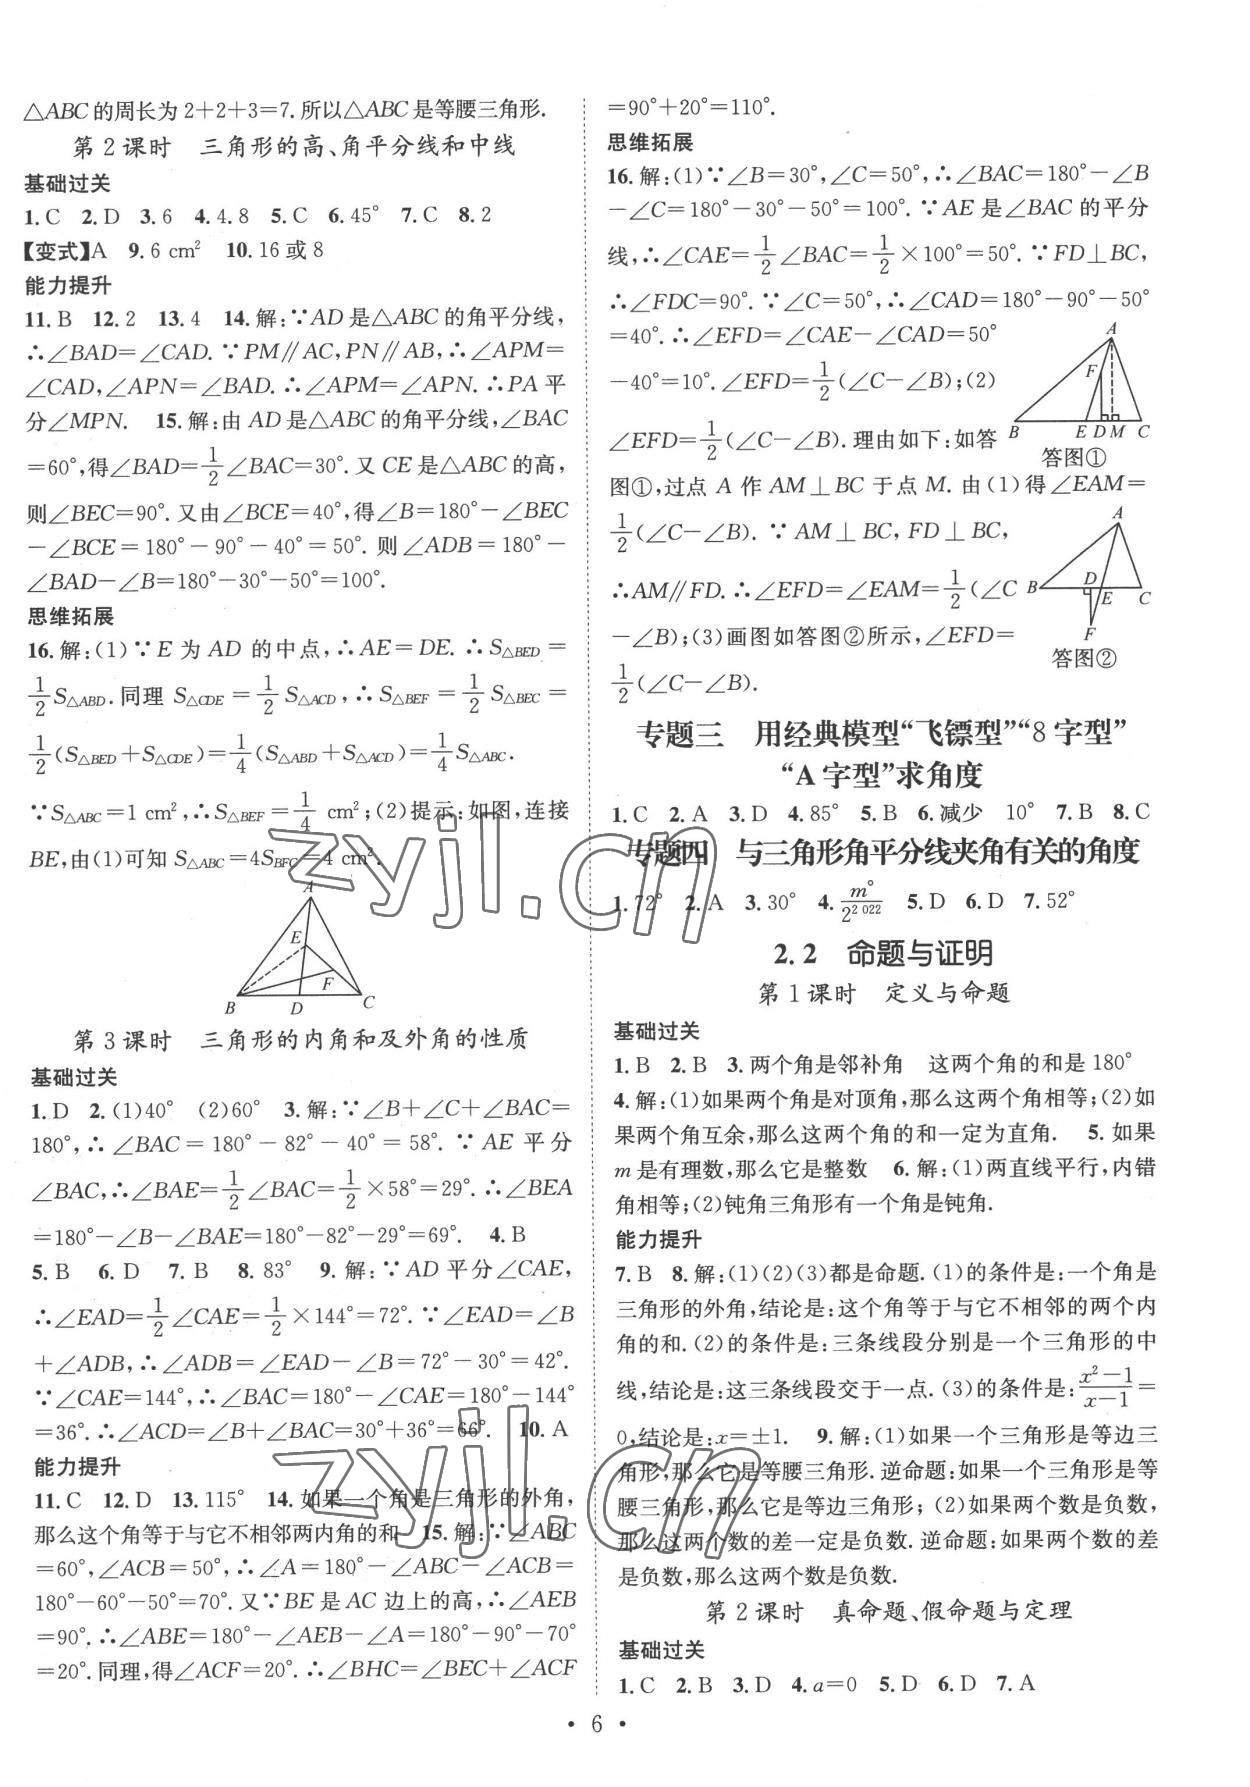 △ABC的周长为2+2+3=7.所以△ABC是等腰三角形.
第2课时　三角形的高、角平分线和中线
基础过关
1.C　2.D　3.6　4.4.8　5.C　6.45°　7.C　8.2
【变式】A　9.6 cm²　10.16或8
能力提升
11.B　12.2　13.4　14.解:∵AD是△ABC的角平分线,
∴∠BAD=∠CAD.∵PM∥AC,PN∥AB,∴∠APM=
∠CAD,∠APN=∠BAD.∴∠APM=∠APN.∴PA平
分∠MPN.　15.解:由AD是△ABC的角平分线,∠BAC
=60°,得∠BAD=1/2∠BAC=30°.又CE是△ABC的高,
则∠BEC=90°.又由∠BCE=40°,得∠B=180°-∠BEC
-∠BCE=180°-90°-40°=50°.则∠ADB=180°-
∠BAD-∠B=180°-30°-50°=100°.
思维拓展
16.解:(1)∵E为AD的中点,∴AE=DE.∴S△BED=
1/2 S△ABD.同理S△CDE=1/2 S△ACD,∴S△BEF=1/2 S△BEC=
1/2(S△BED+S△CDE)=1/4(S△ABD+S△ACD)=1/4 S△ABC.
∵S△ABC=1 cm²,∴S△BEF=1/4 cm²;(2)提示:如图,连接
BE,由(1)可知S△ABC=4S△BFC=4 cm².
A
E
F
B D C
第3课时　三角形的内角和及外角的性质
基础过关
1.D　2.(1)40°　(2)60°　3.解:∵∠B+∠C+∠BAC=
180°,∴∠BAC=180°-82°-40°=58°.∵AE平分
∠BAC,∴∠BAE=1/2∠BAC=1/2×58°=29°.∴∠BEA
=180°-∠B-∠BAE=180°-82°-29°=69°.　4.B
5.B　6.D　7.B　8.83°　9.解:∵AD平分∠CAE,
∴∠EAD=1/2∠CAE=1/2×144°=72°.∵∠EAD=∠B
+∠ADB,∴∠ADB=∠EAD-∠B=72°-30°=42°.
∵∠CAE=144°,∴∠BAC=180°-∠CAE=180°-144°
=36°.∴∠ACD=∠B+∠BAC=30°+36°=66°.　10.A
能力提升
11.C　12.D　13.115°　14.如果一个角是三角形的外角,
那么这个角等于与它不相邻两内角的和　15.解:∵∠ABC
=60°,∠ACB=50°,∴∠A=180°-∠ABC-∠ACB=
180°-60°-50°=70°.又∵BE是AC边上的高,∴∠AEB
=90°.∴∠ABE=180°-∠AEB-∠A=180°-90°-70°
=20°.同理,得∠ACF=20°.∴∠BHC=∠BEC+∠ACF
=90°+20°=110°.
思维拓展
16.解:(1)∵∠B=30°,∠C=50°,∴∠BAC=180°-∠B
-∠C=180°-30°-50°=100°.∵AE是∠BAC的平分
线,∴∠CAE=1/2∠BAC=1/2×100°=50°.∵FD⊥BC,
∴∠FDC=90°.∵∠C=50°,∴∠CAD=180°-90°-50°
=40°.∴∠EFD=∠CAE-∠CAD=50°
-40°=10°.∠EFD=1/2(∠C-∠B);(2)
∠EFD=1/2(∠C-∠B).理由如下:如答
A
F
B E D M C
答图①
图①,过点A作AM⊥BC于点M.由(1)得∠EAM=
1/2(∠C-∠B).∵AM⊥BC,FD⊥BC,
∴AM∥FD.∴∠EFD=∠EAM=1/2(∠C
-∠B);(3)画图如答图②所示,∠EFD=
1/2(∠C-∠B).
A
B D E C
F
答图②
专题三　用经典模型“飞镖型”“8字型”
“A字型”求角度
1.C　2.A　3.D　4.85°　5.B　6.减少　10°　7.B　8.C
专题四　与三角形角平分线夹角有关的角度
1.72°　2.A　3.30°　4.m°/2^2 022　5.D　6.D　7.52°
2.2　命题与证明
第1课时　定义与命题
基础过关
1.B　2.B　3.两个角是邻补角　这两个角的和是180°
4.解:(1)如果两个角是对顶角,那么这两个角相等;(2)如
果两个角互余,那么这两个角的和一定为直角.　5.如果
m是有理数,那么它是整数　6.解:(1)两直线平行,内错
角相等;(2)钝角三角形有一个角是钝角.
能力提升
7.B　8.解:(1)(2)(3)都是命题.(1)的条件是:一个角是
三角形的外角,结论是:这个角等于与它不相邻的两个内
角的和.(2)的条件是:三条线段分别是一个三角形的中
线,结论是:这三条线段交于一点.(3)的条件是:(x²-1)/(x-1)=
0,结论是:x=±1.　9.解:(1)如果一个三角形是等边三
角形,那么它是等腰三角形.逆命题:如果一个三角形是等
腰三角形,那么它是等边三角形;(2)如果两个数是负数,
那么这两个数的差一定是负数.逆命题:如果两个数的差
是负数,那么这两个数是负数.
第2课时　真命题、假命题与定理
基础过关
1.C　2.B　3.D　4.a=0　5.D　6.D　7.A
• 6 •
zyjl.cn
zyjl.cn